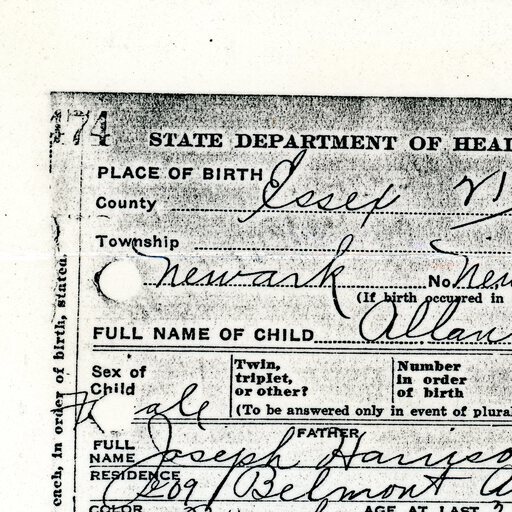 74
STATE DEPARTMENT OF HEAL
PLACE OF BIRTH
County Essex
Township
Newark No. New
(If birth occurred in
FULL NAME OF CHILD Allan
Sex of Child
Twin, triplet, or other?
Number in order of birth
(To be answered only in event of plural
FATHER
FULL NAME Joseph Harriso
RESIDENCE 209 Belmont A
COLOR
AGE AT LAST
each, in order of birth, stated.